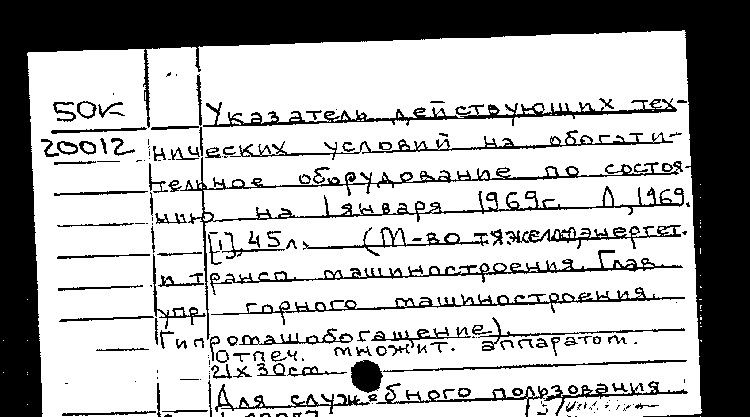 50К
20012
Указатель действующих тех-
нических условий на обогати-
тельное оборудование по состоя-
нию на 1 января 1969г. Л., 1969.
[1], 45л. (М-во тяжелого, энергет.
и трансп. машиностроения. Глав.
упр. горного машиностроения.
Гипромашобогащение).
Отпеч. множит. аппаратом.
21х30см.
Для служебного пользования